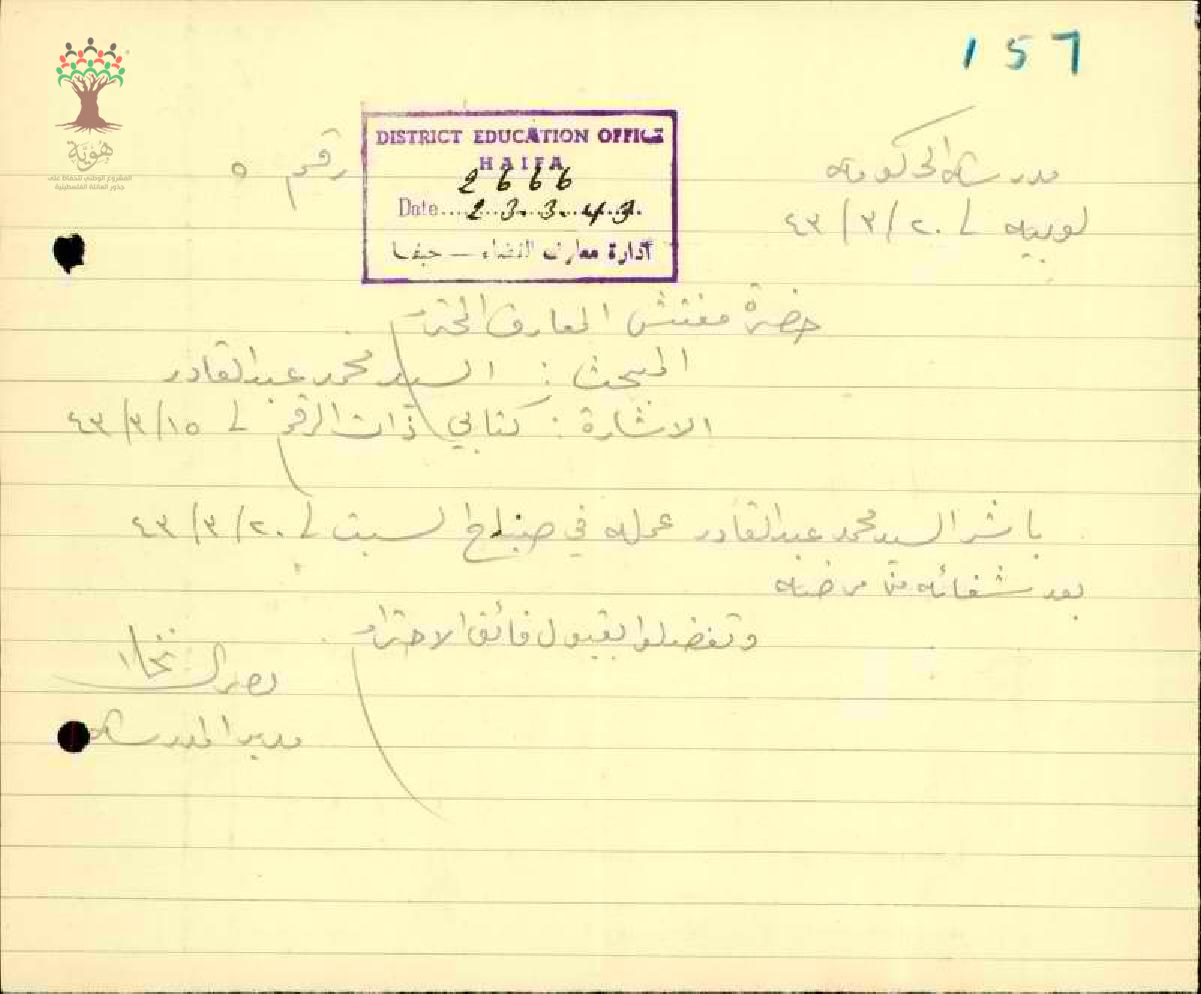 157
هوية
المشروع الوطني للحفاظ على
جذور العائلة الفلسطينية
DISTRICT EDUCATION OFFICE
HAIFA
2666
Date....23.3.43.
ادارة معارف القضاء — حيفا
رقم ٥
مدرسة الحكومة
لوبيه في ٢٠/٣/٤٣
حضرة مفتش المعارف المحترم
المبحث : السيد محمد عبد القادر
الاشارة : كتابي ذات الرقم في ١٥/٣/٤٣
باشر السيد محمد عبد القادر عمله في صباح السبت في ٢٠/٣/٤٣
بعد شفائه من مرضه
وتفضلوا بقبول فائق الاحترام
مدير المدرسة